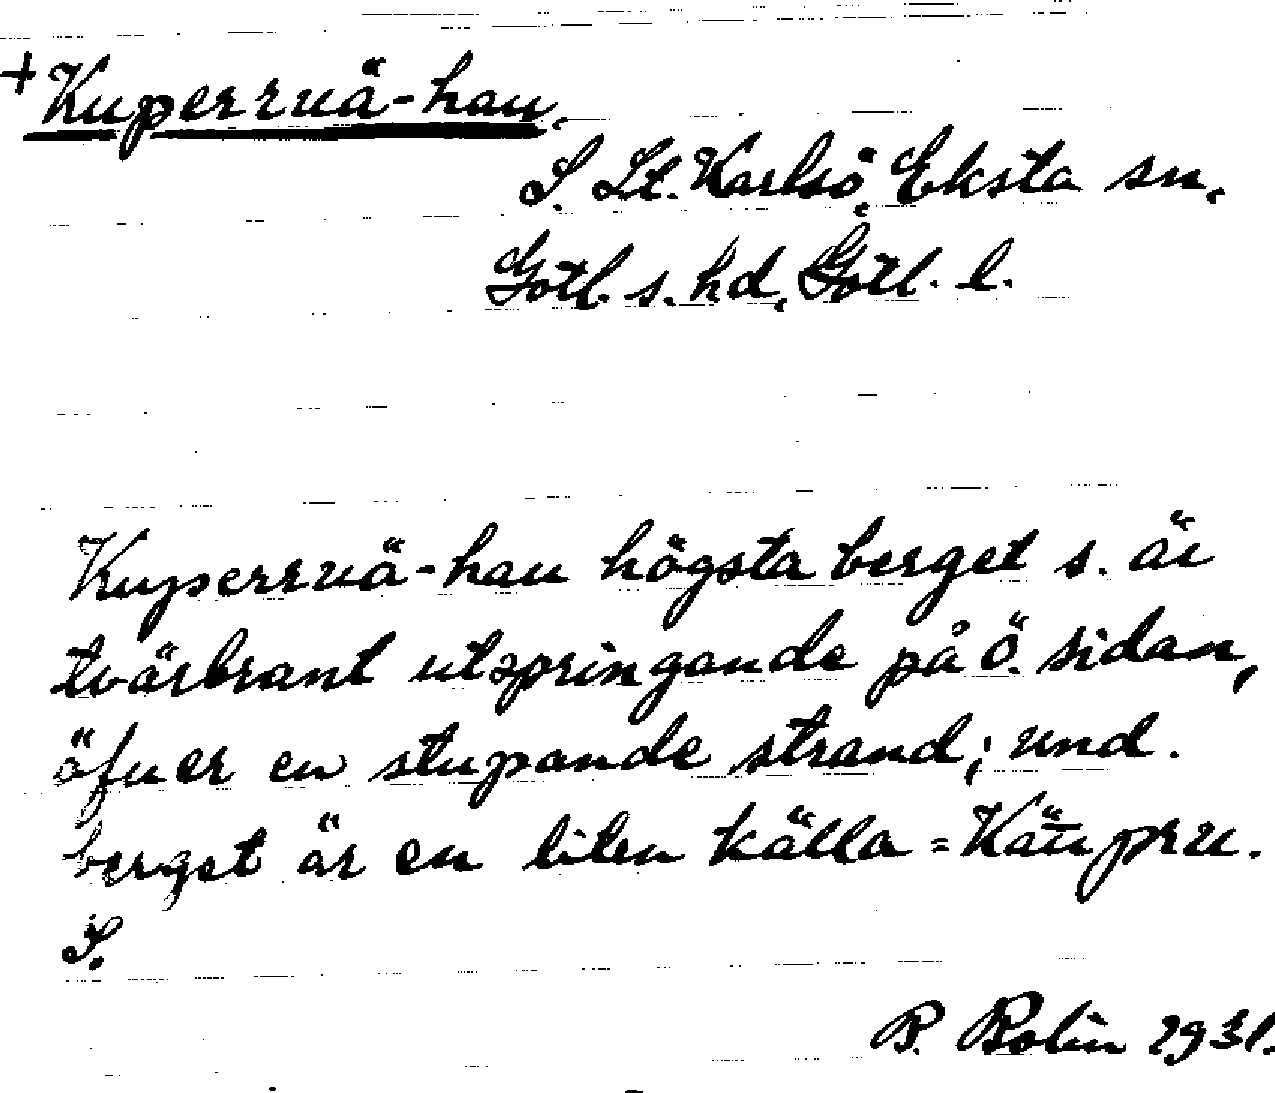 + Kuperruä-hau.
S. Lt. Karlsö, Eksta sn.
Gotl. s. hd, Gotl. l.
Kuperruä-hau högsta berget s. är
tvärbrant utspringande på ö. sidan,
öfver en stupande strand; und.
berget är en liten källa = Käupru.
S.
P. Bolin 1931.